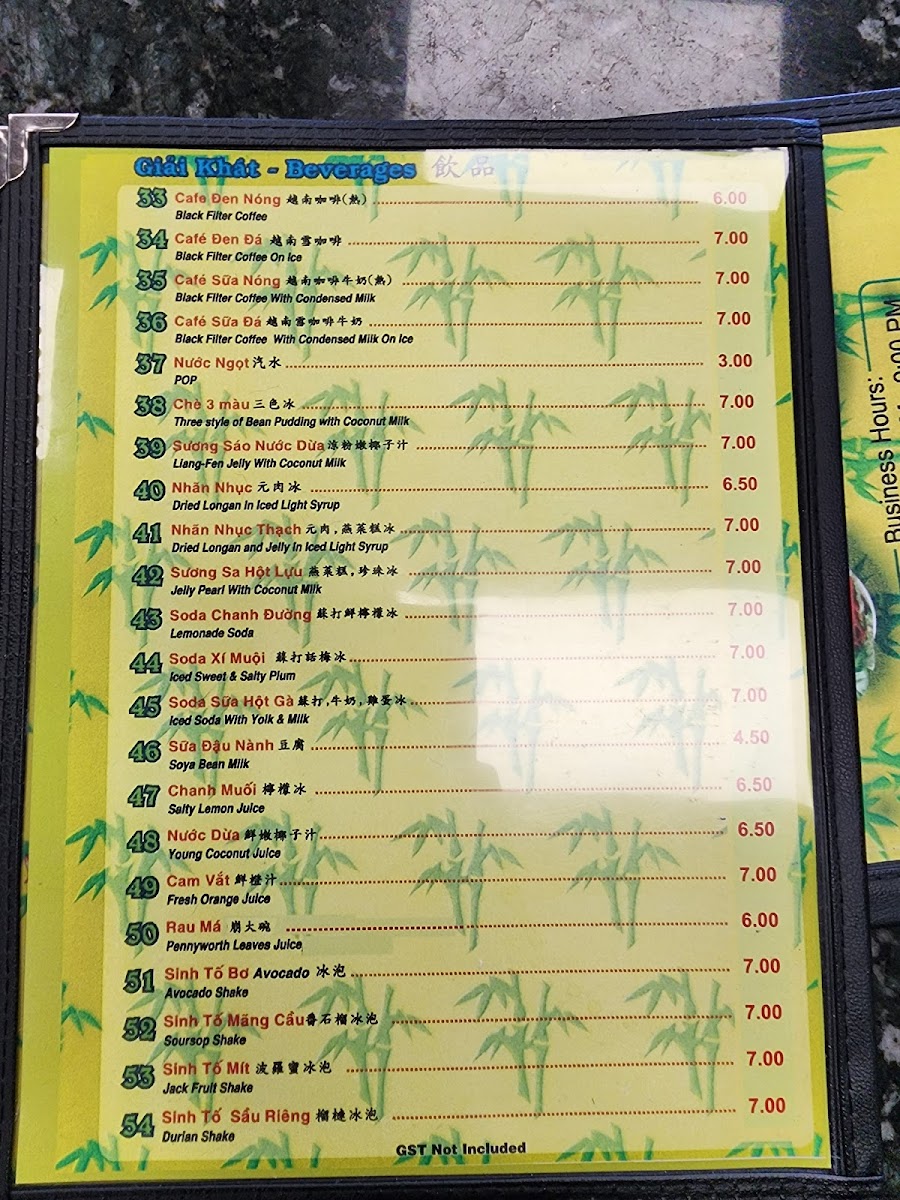 Giải Khát - Beverages 飲品
33 Cafe Đen Nóng 越南咖啡(热) 6.00
Black Filter Coffee
34 Café Đen Đá 越南雪咖啡 7.00
Black Filter Coffee On Ice
35 Café Sữa Nóng 越南咖啡牛奶(热) 7.00
Black Filter Coffee With Condensed Milk
36 Café Sữa Đá 越南雪咖啡牛奶 7.00
Black Filter Coffee With Condensed Milk On Ice
37 Nước Ngọt 汽水 3.00
POP
38 Chè 3 màu 三色冰 7.00
Three style of Bean Pudding with Coconut Milk
39 Sương Sáo Nước Dừa 涼粉嫩椰子汁 7.00
Liang-Fen Jelly With Coconut Milk
40 Nhãn Nhục 元肉冰 6.50
Dried Longan in Iced Light Syrup
41 Nhãn Nhục Thạch 元肉,燕菜糕冰 7.00
Dried Longan and Jelly In Iced Light Syrup
42 Sương Sa Hột Lựu 燕菜糕,珍珠冰 7.00
Jelly Pearl With Coconut Milk
43 Soda Chanh Đường 蘇打鮮檸檬冰 7.00
Lemonade Soda
44 Soda Xí Muội 蘇打話梅冰 7.00
Iced Sweet & Salty Plum
45 Soda Sữa Hột Gà 蘇打,牛奶,雞蛋冰 7.00
Iced Soda With Yolk & Milk
46 Sữa Đậu Nành 豆腐 4.50
Soya Bean Milk
47 Chanh Muối 檸檬冰 6.50
Salty Lemon Juice
48 Nước Dừa 鮮嫩椰子汁 6.50
Young Coconut Juice
49 Cam Vắt 鮮橙汁 7.00
Fresh Orange Juice
50 Rau Má 崩大碗 6.00
Pennyworth Leaves Juice
51 Sinh Tố Bơ Avocado 冰泡 7.00
Avocado Shake
52 Sinh Tố Mãng Cầu 番石榴冰泡 7.00
Soursop Shake
53 Sinh Tố Mít 波羅蜜冰泡 7.00
Jack Fruit Shake
54 Sinh Tố Sầu Riêng 榴槤冰泡 7.00
Durian Shake
GST Not Included
Business Hours:
9:00 PM